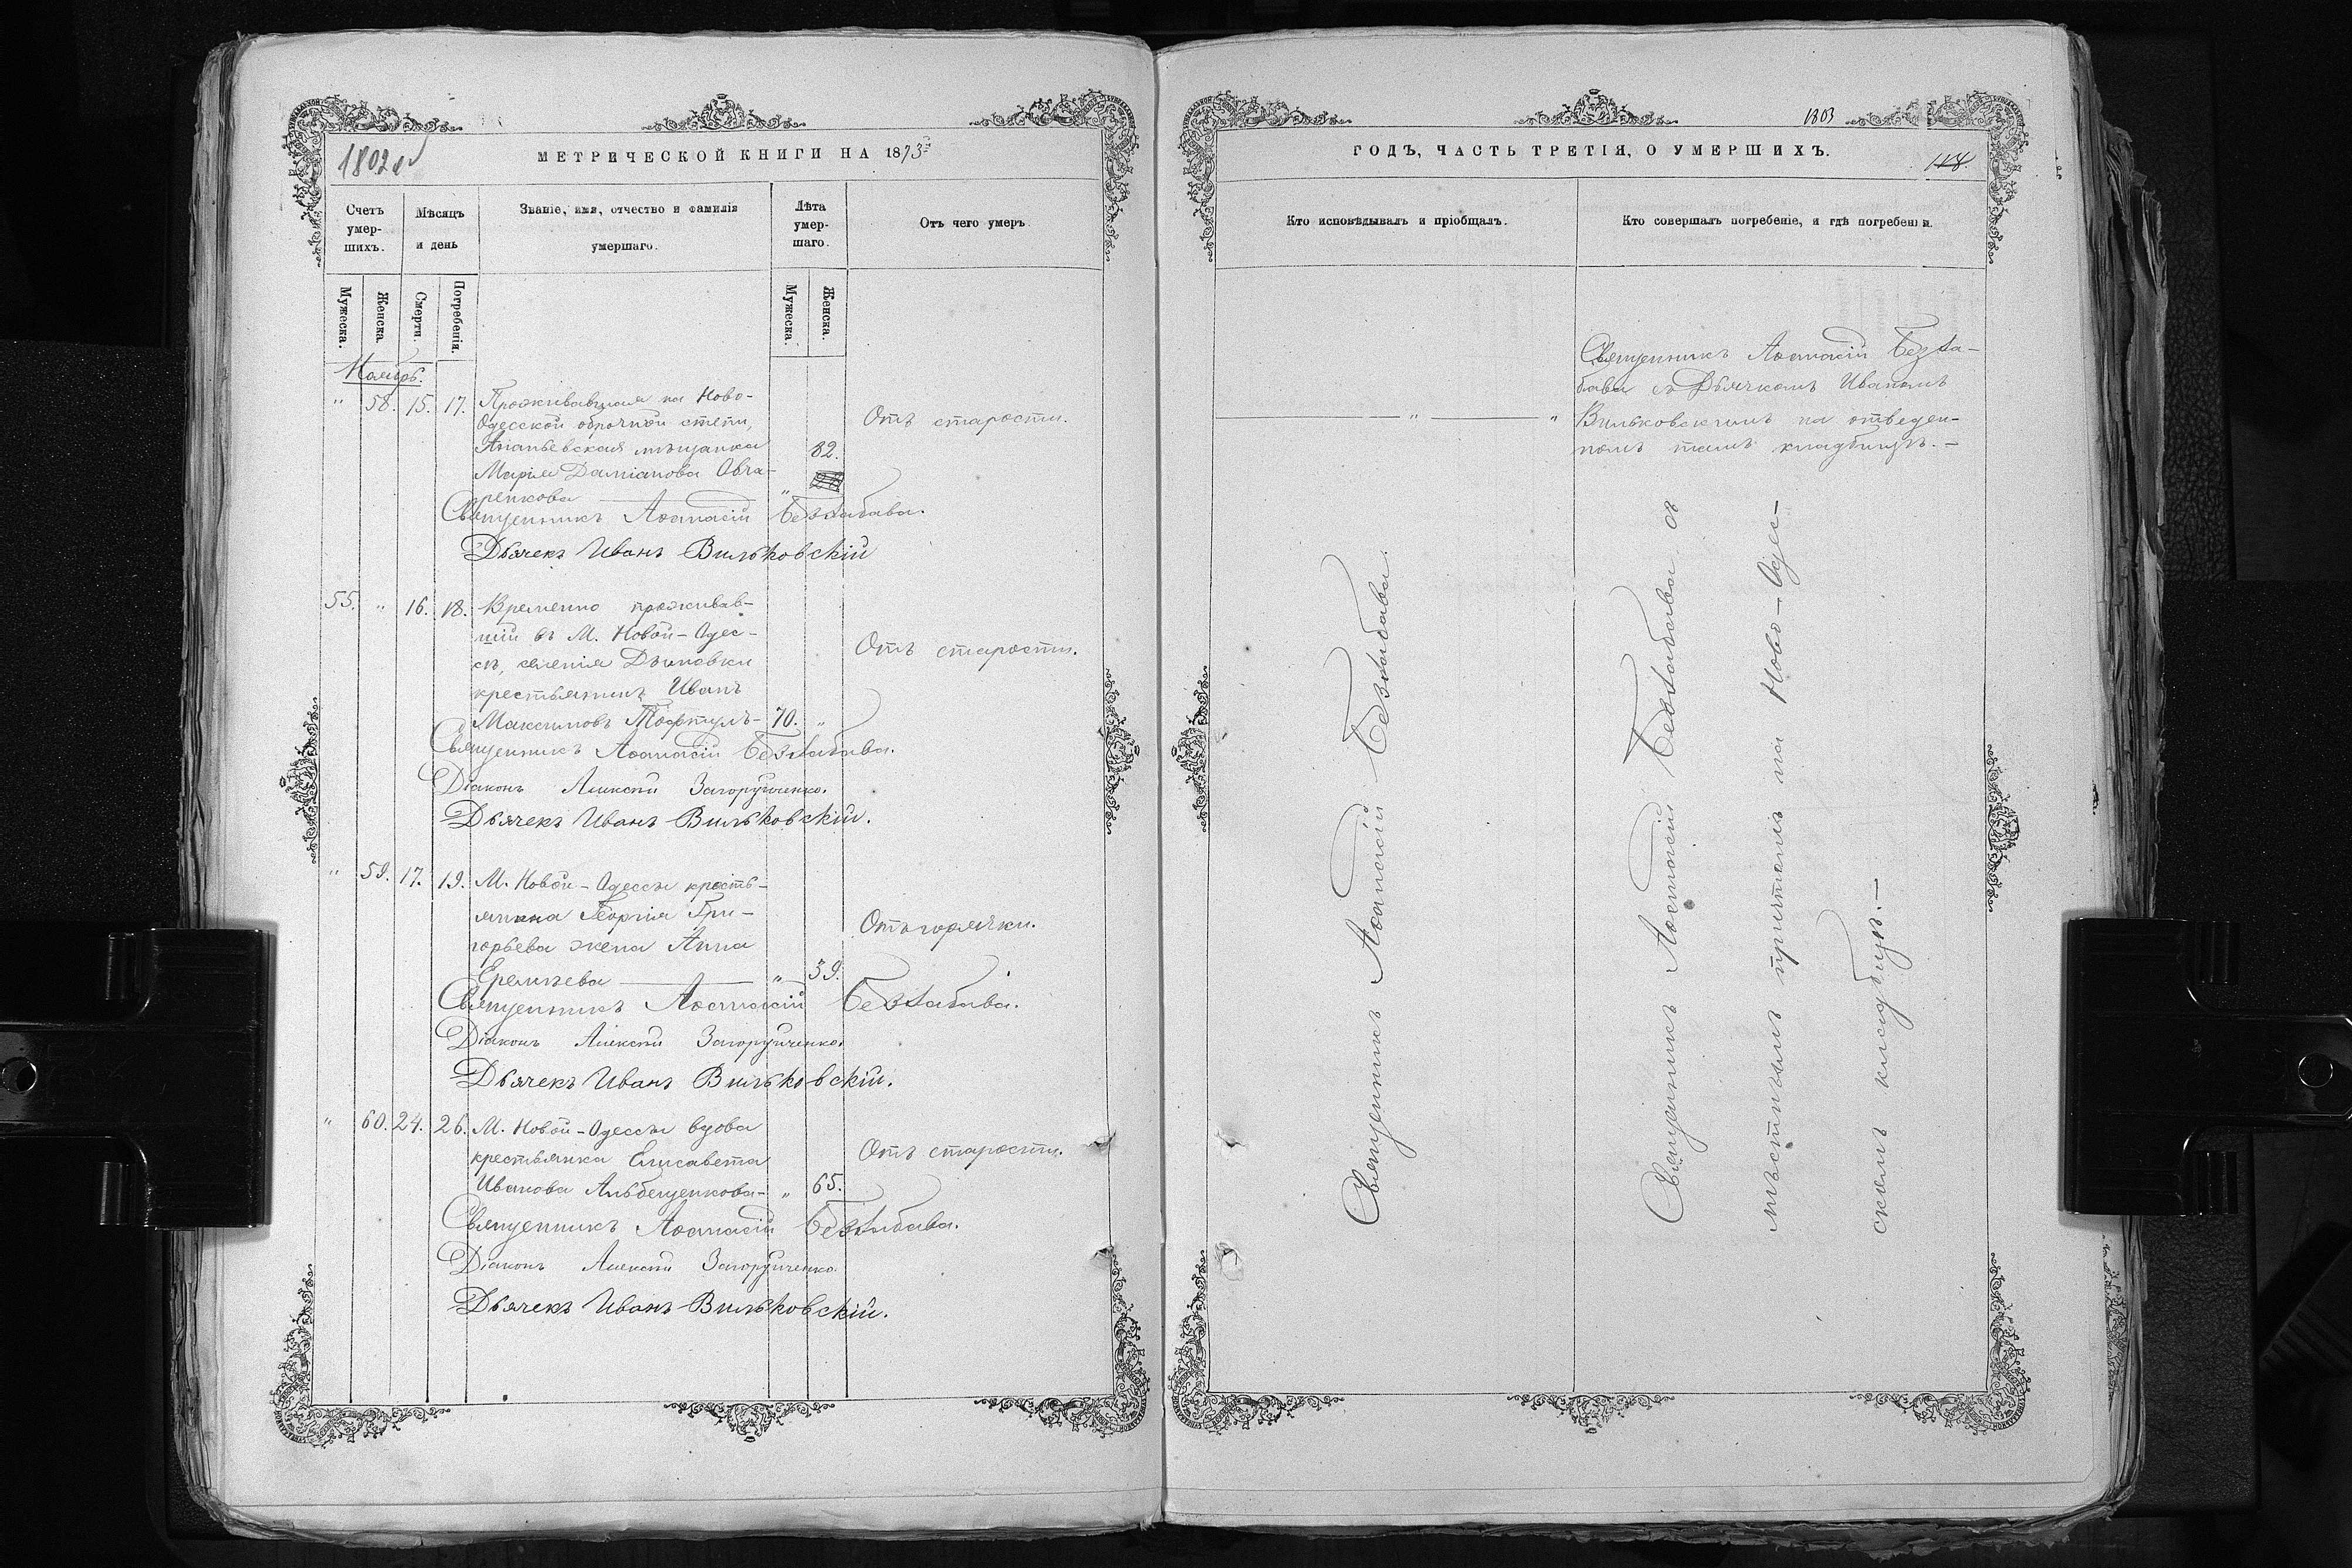 1802 об
МЕТРИЧЕСКОЙ КНИГИ НА 1873й
Счетъ умер-шихъ.
Мѣсяцъ и день
Званіе, имя, отчество и фамилія умершаго.
Лѣта умер-шаго.
Отъ чего умеръ.
Мужеска.
Женска.
Смерти.
Погребенія.
Мужеска.
Женска.
Ноябрь.
" 58. 15. 17. Проживавшая на Ново-
Одесской оброчной степи,
Ананьевская мѣщанка 82. Отъ старости.
Марія Даміанова Овча-
ренкова "
Священникъ Аѳанасій Беззабава.
Дьячекъ Иванъ Вильковскій
55. " 16. 18. Временно проживав-
шій въ М. Новой-Одес-
сѣ, селенія Дѣновки Отъ старости.
крестьянинъ Иванъ
Максимовъ 70. "
Священникъ Аѳанасій Беззабава.
Діаконъ Алексій Загоруйченко.
Дьячекъ Иванъ Вильковскій.
" 59. 17. 19. М. Новой-Одессы кресть-
янина Георгія Гри-
горьева жена Анна Отъ горячки.
Еремѣева " 39.
Священникъ Аѳанасій Беззабава.
Діаконъ Алексій Загоруйченко.
Дьячекъ Иванъ Вильковскій.
" 60. 24. 26. М. Новой-Одессы вдова
крестьянка Елисавета Отъ старости.
Иванова Альбещенкова- " 65.
Священникъ Аѳанасій Беззабава.
Діаконъ Алексій Загоруйченко.
Дьячекъ Иванъ Вильковскій.
1803
ГОДЪ, ЧАСТЬ ТРЕТІЯ, О УМЕРШИХЪ.
118.
Кто исповѣдывалъ и пріобщалъ.
Кто совершалъ погребеніе, и гдѣ погребены.
Священникъ Аѳанасій Безза-
бава съ Дьячкомъ Иваномъ
" " Вильковскимъ на отведен-
номъ тамъ кладбищѣ.—
Священникъ Аѳанасій Беззабава.
Священникъ Аѳанасій Беззабава съ
мѣстнымъ причтомъ на Ново-Одес-
скомъ кладбищѣ.—